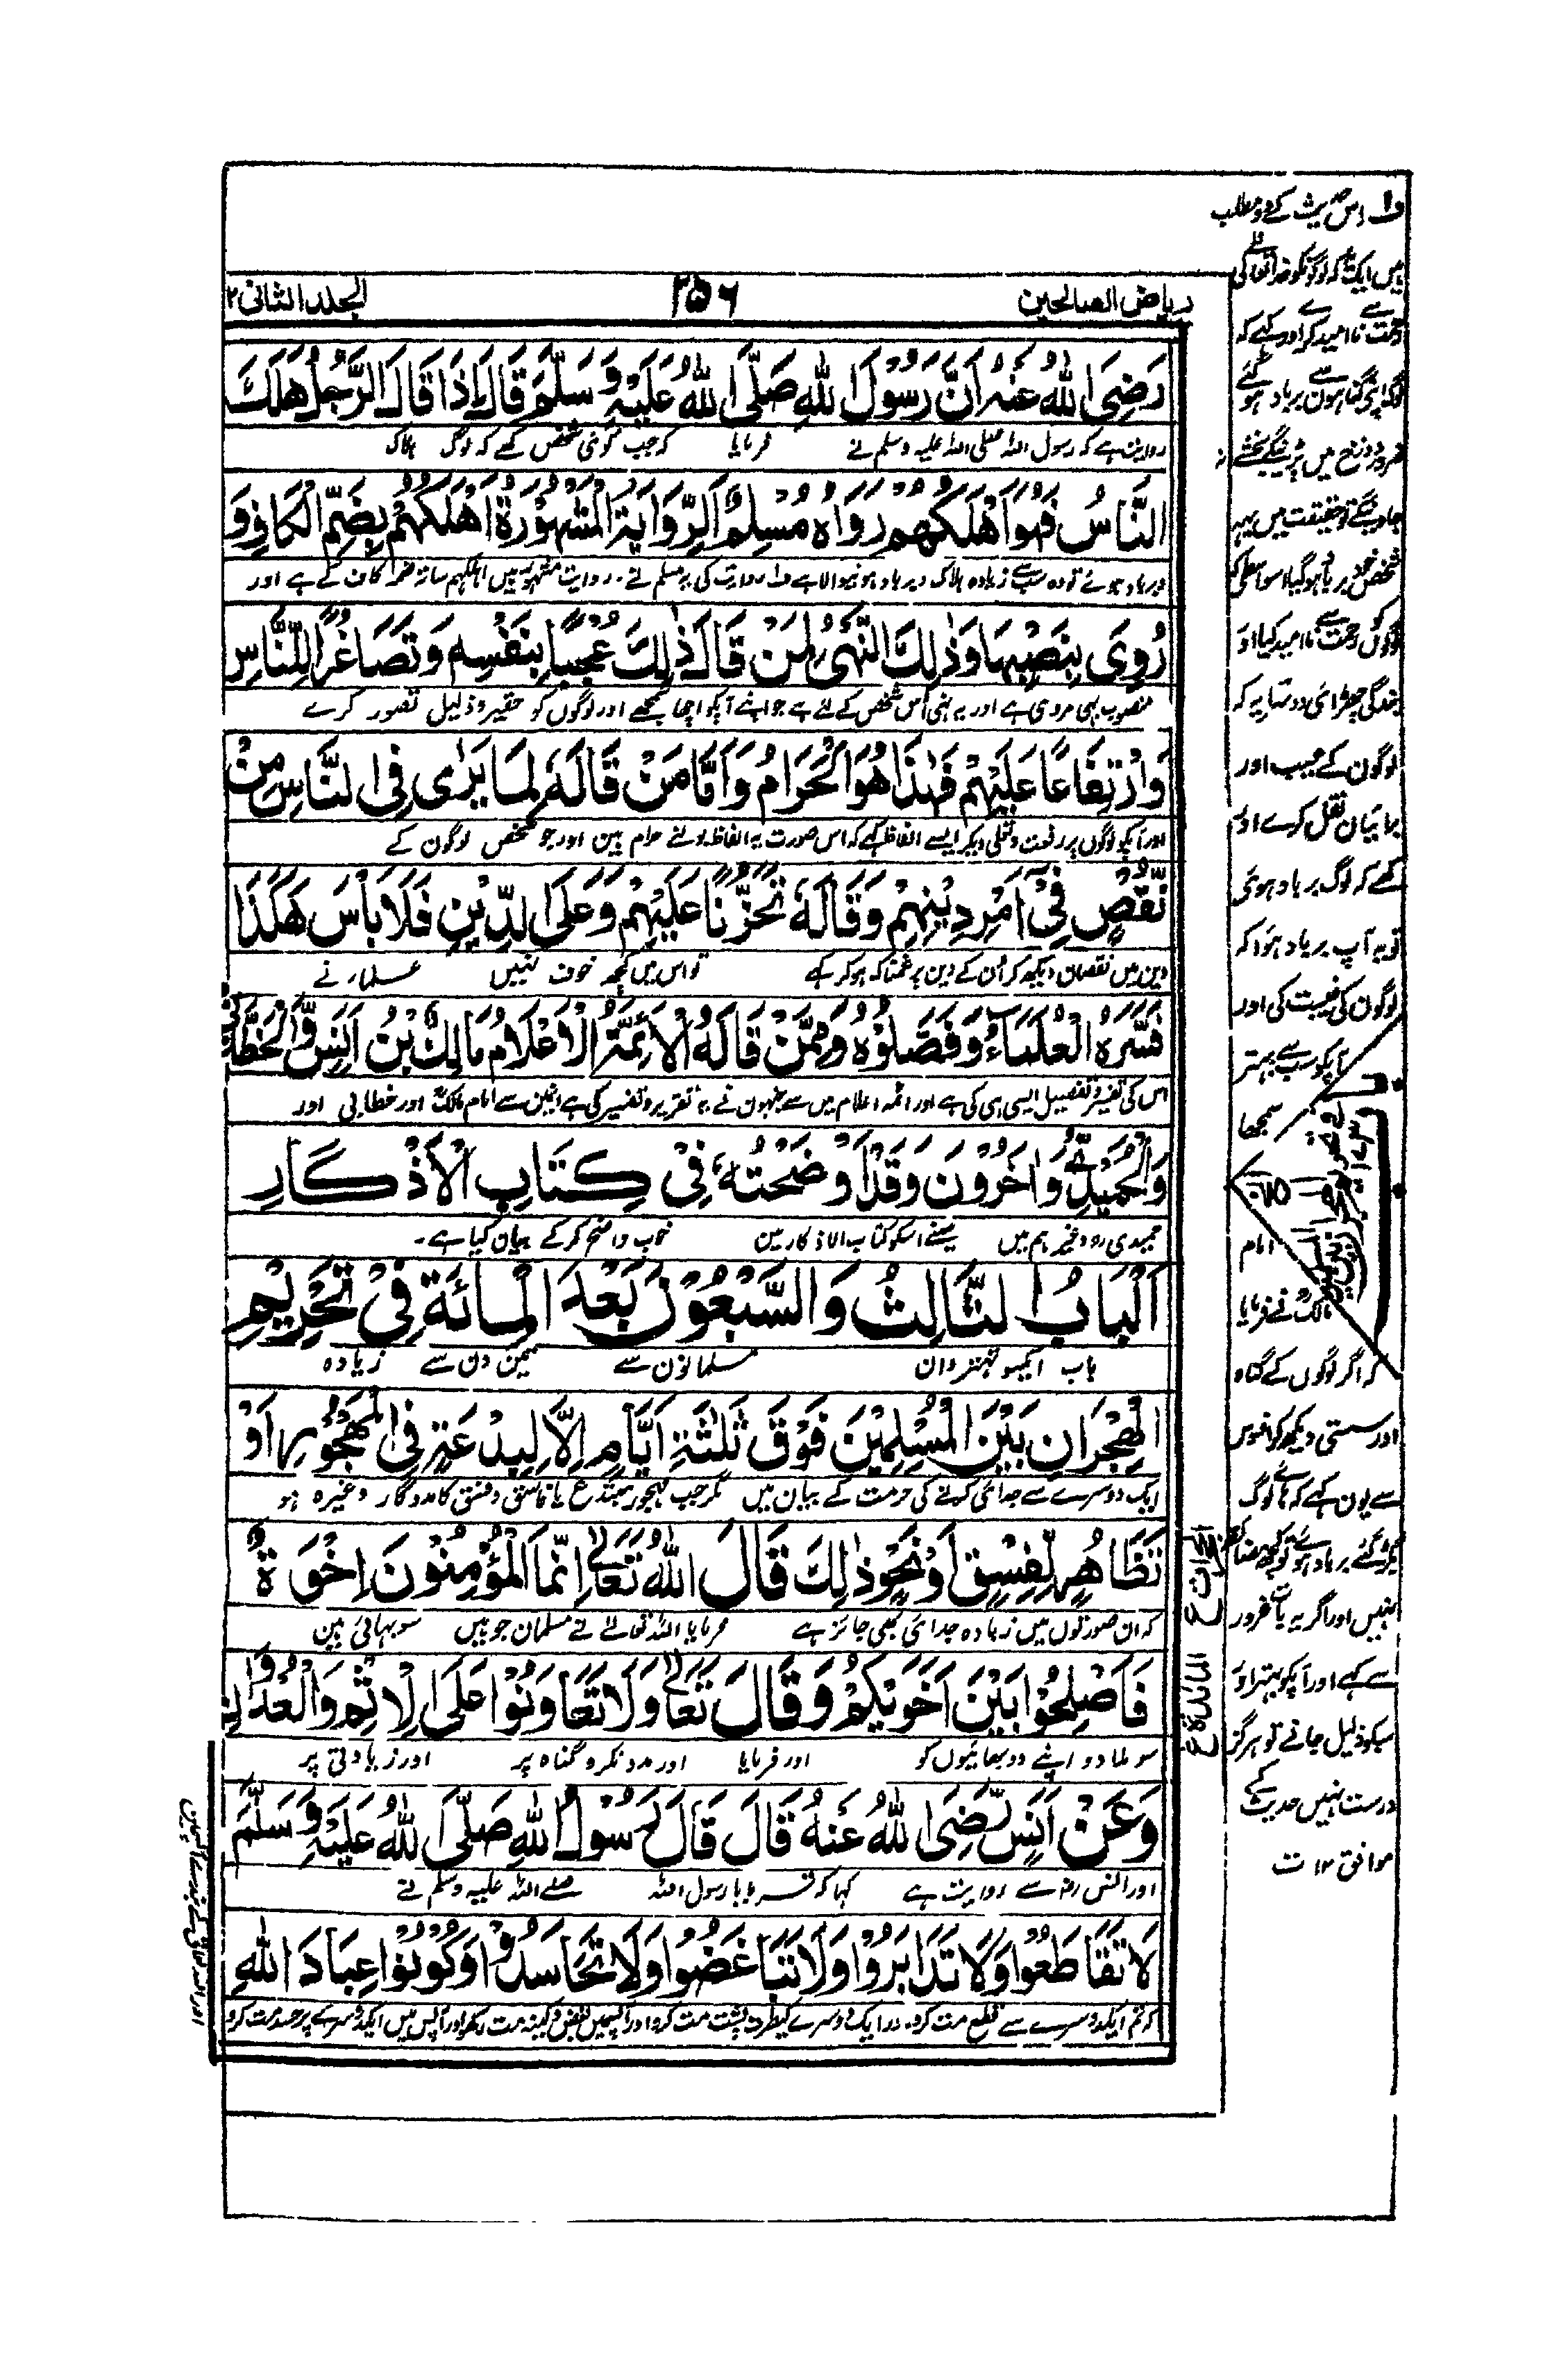 ریاض الصالحین
۲۵۶
الجلد الثانی ۲
رَضِیَ اللهُ عَنْهُ اَنَّ رَسُوْلَ اللهِ صَلَّی اللهُ عَلَیْهِ وَسَلَّمَ قَالَ اِذَا قَالَ الرَّجُلُ هَلَكَ
روایت ہے کہ رسول اللہ صلی اللہ علیہ وسلم نے فرمایا کہ جب کوئی شخص کہے کہ لوگ ہلاک
النَّاسُ فَهُوَ اَهْلَكُهُمْ رَوَاهُ مُسْلِمٌ اَلرِّوَایَةُ الْمَشْهُوْرَةُ اَهْلَكُهُمْ بِضَمِّ الْكَافِ وَ
وبرباد ہوئے تو وہ سب سے زیادہ ہلاک و برباد ہونیوالا ہے ف۱ روایت کی یہ مسلم نے۔ روایت مشہورہ میں اہلکہم ساتھ ضمہ کاف کے ہے اور
رُوِیَ بِنَصْبِهَا وَذٰلِكَ النَّهْیُ لِمَنْ قَالَ ذٰلِكَ عُجْبًا بِنَفْسِهٖ وَتَصَاغُرًا لِلنَّاسِ
منصوب بھی مروی ہے اور یہ نہی اس شخص کے لئے ہے جو اپنے آپکو اچھا سمجھے اور لوگوں کو حقیر و ذلیل تصور کرے
وَارْتِفَاعًا عَلَیْهِمْ فَهٰذَا هُوَ الْحَرَامُ وَاَمَّا مَنْ قَالَهٗ لِمَا یَرٰی فِی النَّاسِ مِنْ
اور آپکو لوگوں پر رفعت و تعلی دیکر ایسے الفاظ کہے کہ اس صورت یہ الفاظ بولنے حرام ہین اور جو شخص لوگون کے
نَقْصٍ فِیْ اَمْرِ دِیْنِهِمْ وَقَالَهٗ تَحَزُّنًا عَلَیْهِمْ وَعَلَی الدِّیْنِ فَلَا بَاْسَ هٰكَذَا
دین میں نقصان دیکھ کر اُن کے دین پر غمناک ہوکر کہے تو اس میں کچھ خوف نہیں علماء نے
فَسَّرَهُ الْعُلَمَاءُ وَفَصَّلُوْهُ وَمِمَّنْ قَالَهُ الْاَئِمَّةُ الْاَعْلَامُ مَالِكُ بْنُ اَنَسٍ وَّالْخَطَّابِیُّ
اس کی تفسیر و تفصیل ایسی ہی کی ہے اور ائمہ اعلام میں سے جنہون نے یہ تقریر و تفسیر کی ہے انہین سے امام مالک اور خطابی اور
وَالْحُمَیْدِیُّ وَاٰخَرُوْنَ وَقَدْ اَوْضَحْتُهٗ فِیْ كِتَابِ الْاَذْكَارِ
حمیدی رہ وغیرہم ہیں مینے اسکو کتاب الاذکار مین خوب واضح کرکے بیان کیا ہے۔
اَلْبَابُ الثَّالِثُ وَالسَّبْعُوْنَ بَعْدَ الْمِائَةِ فِیْ تَحْرِیْمِ
باب ایکسو تہتروان مسلمانون سے تین دن سے زیادہ
الْهِجْرَانِ بَیْنَ الْمُسْلِمِیْنَ فَوْقَ ثَلٰثَةِ اَیَّامٍ اِلَّا لِبِدْعَةٍ فِی الْمَهْجُوْرِ اَوْ
ایک دوسرے سے جدائی کرنے کی حرمت کے بیان میں مگر جب مہجور مبتدع یا فاسق و فسق کا مددگار وغیرہ ہو
تَظَاهُرٍ لِفِسْقٍ اَوْ نَحْوِ ذٰلِكَ قَالَ اللهُ تَعَالٰی اِنَّمَا الْمُؤْمِنُوْنَ اِخْوَةٌ
کہ ان صورتوں میں زیادہ جدائی بھی جائز ہے فرمایا اللہ تعالےٰ نے مسلمان جو ہیں سو بھائی ہین
فَاَصْلِحُوْا بَیْنَ اَخَوَیْكُمْ وَقَالَ تَعَالٰی وَلَا تَعَاوَنُوْا عَلَی الْاِثْمِ وَالْعُدْوَانِ
سو ملا دو اپنے دو بھائیوں کو اور فرمایا اور مدد نکرو گناہ پر اور زیادتی پر
وَعَنْ اَنَسٍ رَّضِیَ اللهُ عَنْهُ قَالَ قَالَ رَسُوْلُ اللهِ صَلَّی اللهُ عَلَیْهِ وَسَلَّمَ
اور انس رضہ سے روایت ہے کہا کہ فرمایا رسول اللہ صلے اللہ علیہ وسلم نے
لَا تَقَاطَعُوْا وَلَا تَدَابَرُوْا وَلَا تَبَاغَضُوْا وَلَا تَحَاسَدُوْا وَكُوْنُوْا عِبَادَ اللهِ
کہ تم ایکدوسرے سے قطع مت کرو۔ اور ایک دوسرے کیطرف پشت مت کرو اور آپسمیں بغض و کینہ مت رکھو اور آپس میں ایکدوسرے پر حسد مت کرو
ف۱ اس حدیث کے دو مطلب
ہیں ایک یہ کہ لوگونکو خدا تعالےٰ کی
رحمت سے ناامید کرے اور کہے کہ
لوگ اپنی گناہون سے برباد ہو گئے
ضرور دوزخ میں پڑینگے بخشے نہ
جاوینگے تو حقیقت میں یہہ
شخص خود برباد ہوگیا اسواسطے کہ
لوگوں کو رحمت سے ناامید کیا اور
بندگی چھڑائی دوسرا یہ کہ
لوگون کے عیب اور
برائیان نقل کرے اور
کہے کہ لوگ برباد ہوئی
تو یہ آپ برباد ہوا کہ
لوگون کی غیبت کی اور
آپکو سب سے بہتر
سمجھا
امام
مالک نے فرمایا
کہ اگر لوگوں کے گناہ
اور سستی دیکھ کر افسوس
سے یون کہے کہ ہائے لوگ
بگڑ گئے برباد ہو گئے تو کچھ مضائقہ
نہیں اور اگر یہ بات غرور
سے کہے اور آپکو بہتر اور
سبکو ذلیل جانے تو ہرگز
درست نہیں حدیث کے
موافق ۱۲ ت
الحجرات ع
المائدة ع